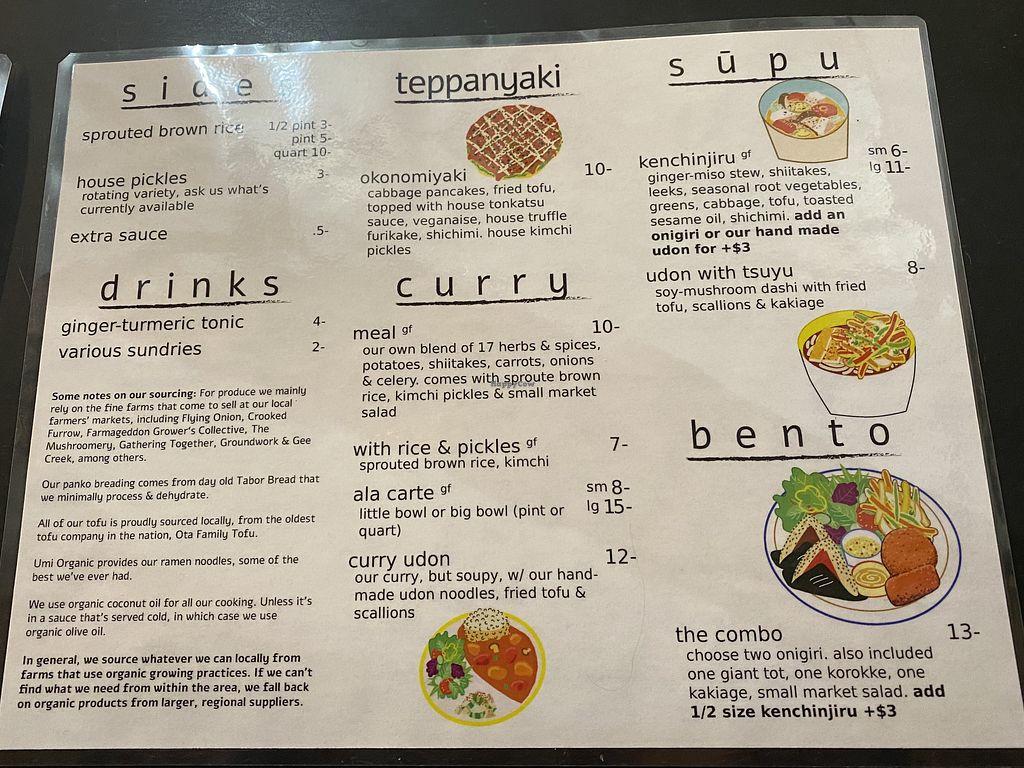 side
sprouted brown rice 1/2 pint 3-
pint 5-
quart 10-
house pickles 3-
rotating variety, ask us what's
currently available
extra sauce .5-
drinks
ginger-turmeric tonic 4-
various sundries 2-
Some notes on our sourcing: For produce we mainly
rely on the fine farms that come to sell at our local
farmers' markets, including Flying Onion, Crooked
Furrow, Farmageddon Grower's Collective, The
Mushroomery, Gathering Together, Groundwork & Gee
Creek, among others.
Our panko breading comes from day old Tabor Bread that
we minimally process & dehydrate.
All of our tofu is proudly sourced locally, from the oldest
tofu company in the nation, Ota Family Tofu.
Umi Organic provides our ramen noodles, some of the
best we've ever had.
We use organic coconut oil for all our cooking. Unless it's
in a sauce that's served cold, in which case we use
organic olive oil.
In general, we source whatever we can locally from
farms that use organic growing practices. If we can't
find what we need from within the area, we fall back
on organic products from larger, regional suppliers.
teppanyaki
okonomiyaki 10-
cabbage pancakes, fried tofu,
topped with house tonkatsu
sauce, veganaise, house truffle
furikake, shichimi. house kimchi
pickles
curry
meal gf 10-
our own blend of 17 herbs & spices,
potatoes, shiitakes, carrots, onions
& celery. comes with sproute brown
rice, kimchi pickles & small market
salad
HappyCow
with rice & pickles gf 7-
sprouted brown rice, kimchi
ala carte gf sm 8-
little bowl or big bowl (pint or lg 15-
quart)
curry udon 12-
our curry, but soupy, w/ our hand-
made udon noodles, fried tofu &
scallions
sūpu
kenchinjiru gf sm 6-
ginger-miso stew, shiitakes, lg 11-
leeks, seasonal root vegetables,
greens, cabbage, tofu, toasted
sesame oil, shichimi. add an
onigiri or our hand made
udon for +$3
udon with tsuyu 8-
soy-mushroom dashi with fried
tofu, scallions & kakiage
bento
the combo 13-
choose two onigiri. also included
one giant tot, one korokke, one
kakiage, small market salad. add
1/2 size kenchinjiru +$3